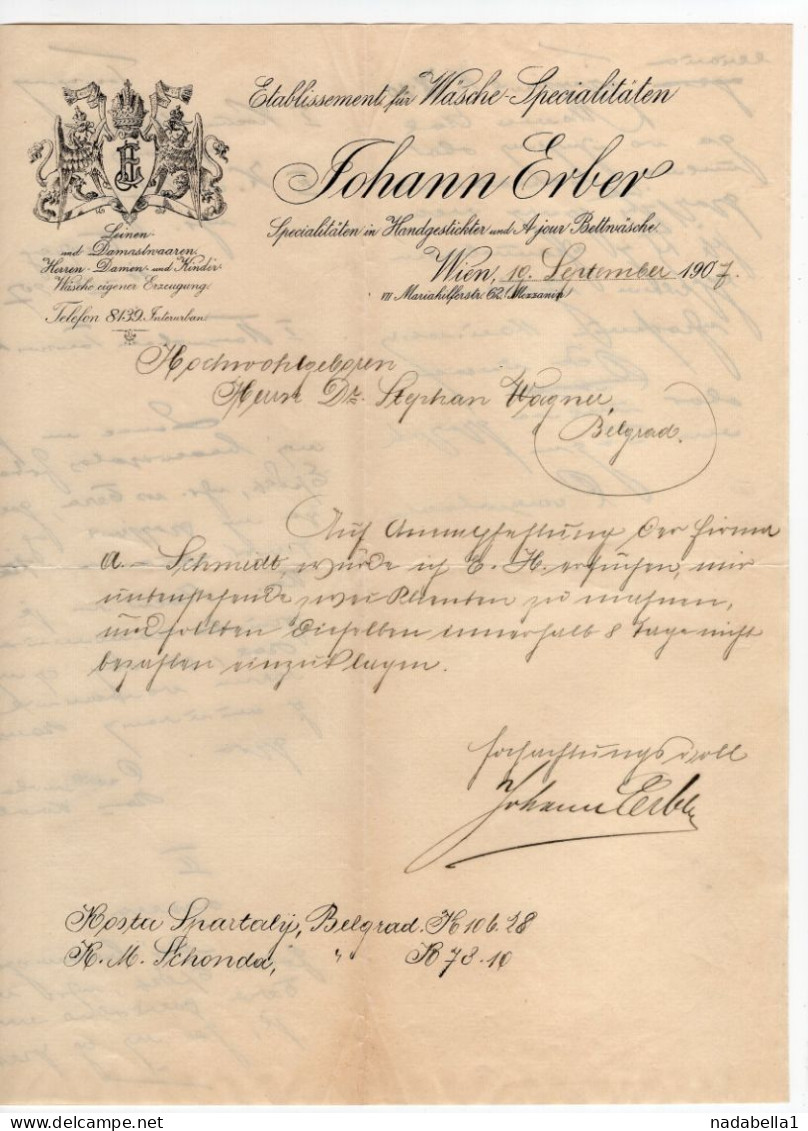 Etablissement für Wäsche-Specialitäten
Johann Erber
Specialitäten in Handgestickter und A-jour Bettwäsche.
Leinen-
und Damastwaaren.
Herren- Damen- und Kinder-
Wäsche eigener Erzeugung.
Telefon 8139. Interurban.
Wien, 19. September 1907.
VII Mariahilferstr. 62. Mezzanin
Hochwohlgeboren
Herrn Dr. Stephan Wagner,
Belgrad.
Auf Anempfehlung der Firma
A. Schmidt, würde ich E. H. ersuchen, mir
untenstehende zwei Klienten zu mahnen,
und sollten dieselben innerhalb 8 Tage nicht
bezahlen einzuklagen.
hochachtungsvoll
Johann Erber
Kosta Spartalij, Belgrad. K 106.28
K. M. Schonda, " K 78.10
DELCAMPE.NET
nadabella1